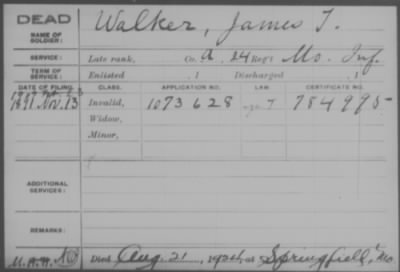 DEAD
Walker, James T.
NAME OF SOLDIER:
SERVICE: Late rank, Co. A, 24 Reg't Mo. Inf.
TERM OF SERVICE: Enlisted , 1 Discharged , 1
DATE OF FILING. CLASS. APPLICATION NO. LAW CERTIFICATE NO.
1891 Nov. 13 Invalid, 1073628 784995
Widow,
Minor,
ADDITIONAL SERVICES:
REMARKS:
Died Aug. 21, at Springfield, Mo.